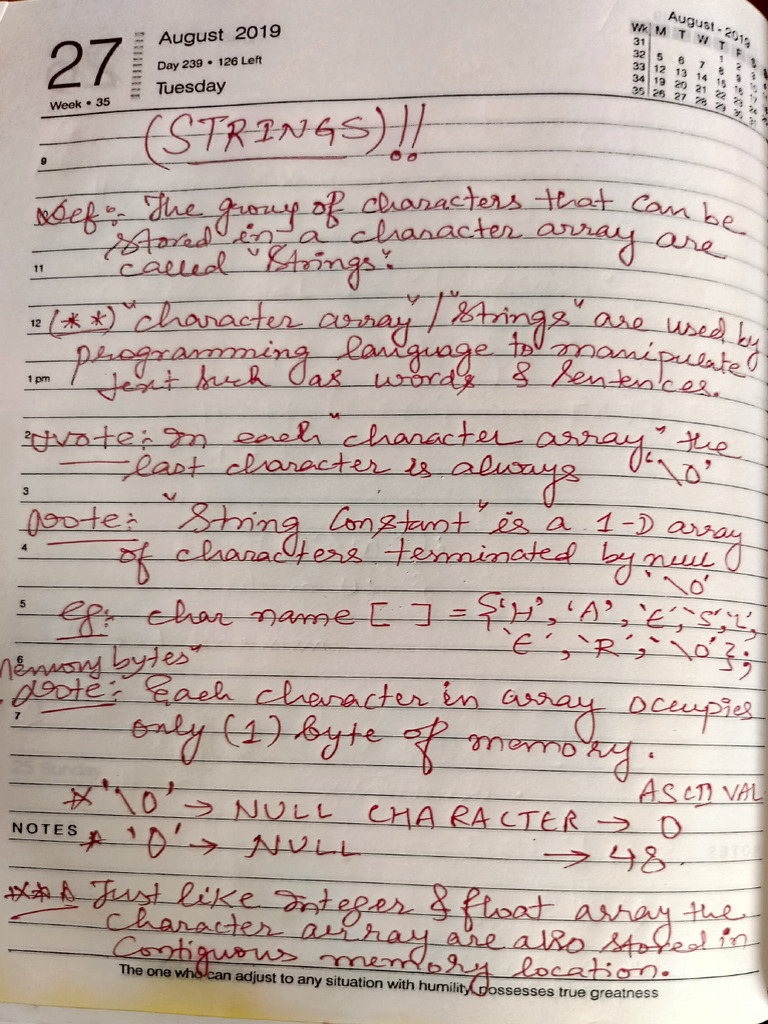 27
August 2019
Day 239 • 126 Left
Tuesday
Week • 35
August - 2019
Wk M T W T F S
31 1 2 3
32 5 6 7 8 9
33 12 13 14 15 16
34 19 20 21 22 23
35 26 27 28 29 30
(STRINGS)!!
9
Def:- The group of characters that can be
stored in a character array are
11 called "Strings".
12 (**) "character array" / "Strings" are used by
programming language to manipulate
1 pm text such as words & Sentences.
2 Note: In each "character array" the
last character is always '\0'
3
Note: "String Constant" is a 1-D array
4 of characters terminated by null
'\0'
5 eg: char name [ ] = {'H', 'A', 'E', 'S', 'L',
'E', 'R', '\0'};
6
Memory bytes"
Note: Each character in array occupies
7 only (1) byte of memory.
ASCII VAL
* '\0' → NULL CHARACTER → 0
NOTES * '0' → NULL → 48
*** Just like Integer & float array the
character array are also stored in
Contiguous memory location.
The one who can adjust to any situation with humility, possesses true greatness